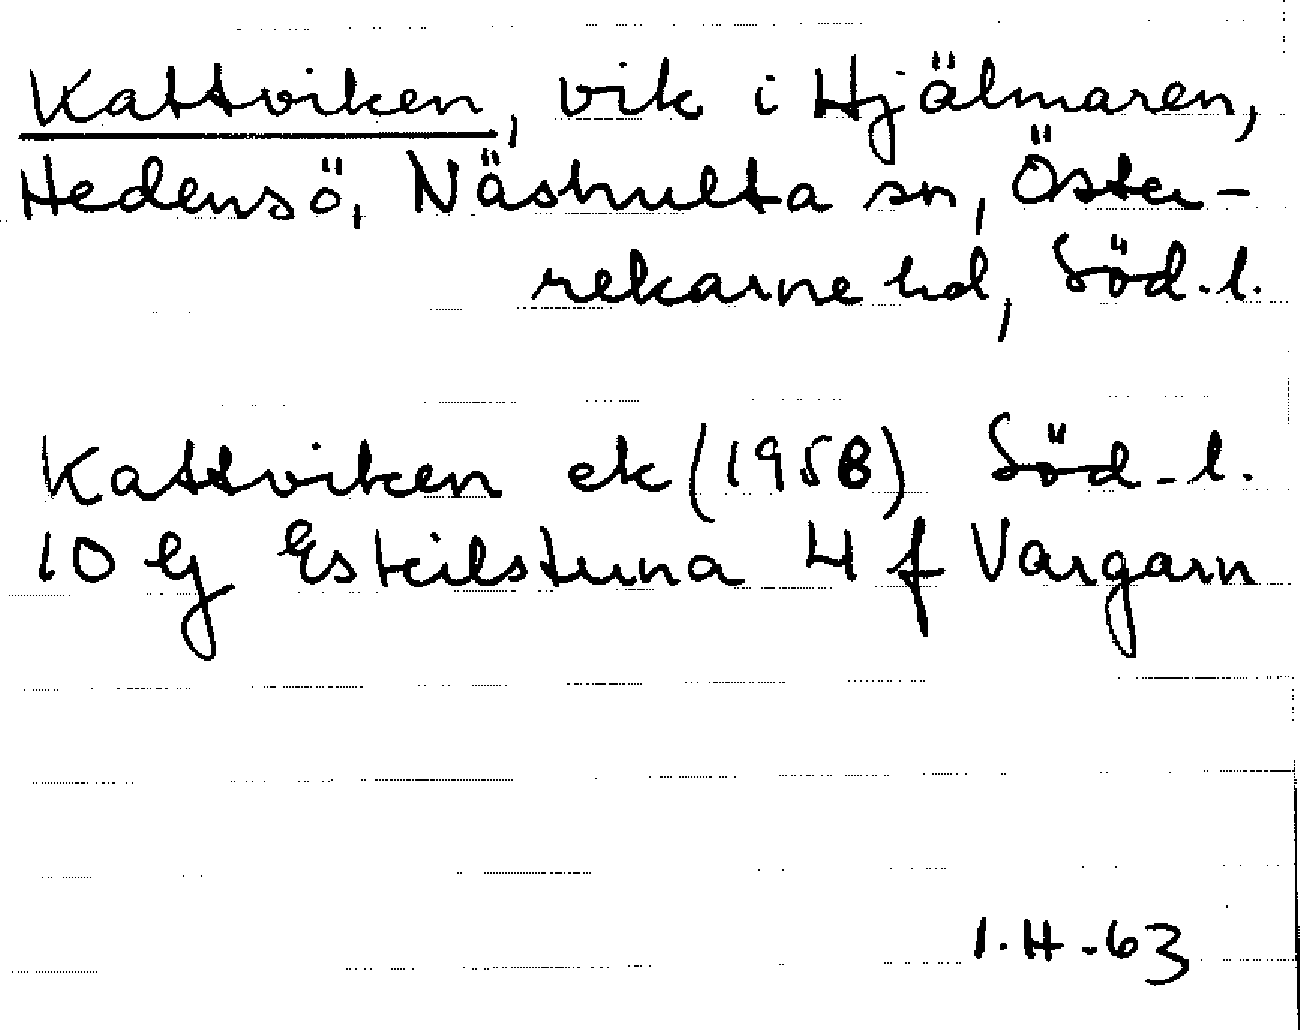 Kattviken, vik i Hjälmaren,
Hedensö, Näshulta sn, Öster-
rekarne hd, Söd.l.
Kattviken ek (1958) Söd.l.
10 G Eskilstuna 4 f Vargarn
I.H-63